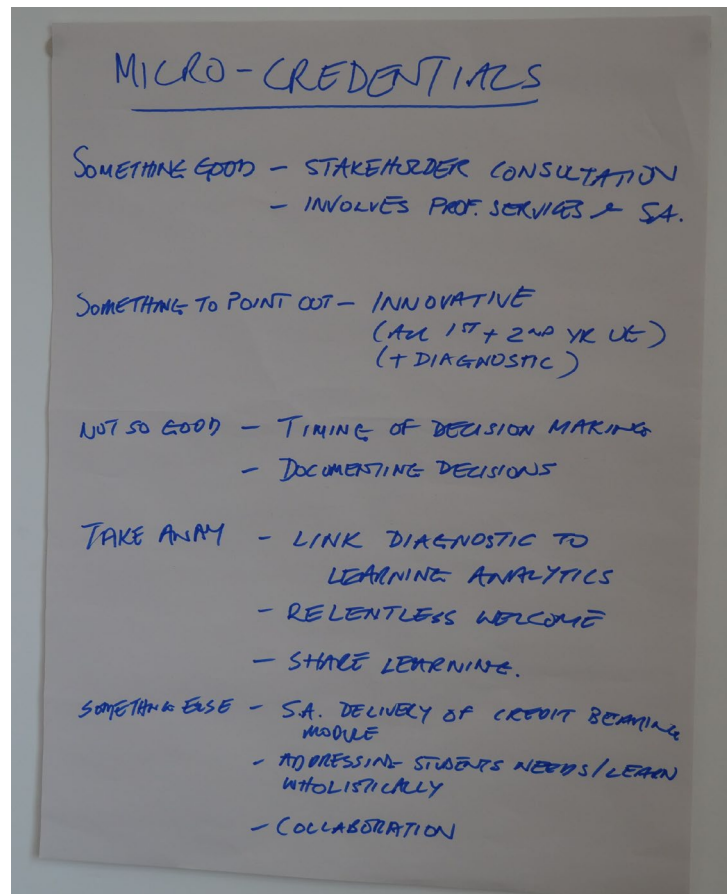 MICRO-CREDENTIALS
SOMETHING GOOD – STAKEHOLDER CONSULTATION
– INVOLVES PROF. SERVICES & S.A.
SOMETHING TO POINT OUT – INNOVATIVE
(ALL 1ST + 2ND YR UE)
(+ DIAGNOSTIC)
NOT SO GOOD – TIMING OF DECISION MAKING
– DOCUMENTING DECISIONS
TAKE AWAY – LINK DIAGNOSTIC TO
LEARNING ANALYTICS
– RELENTLESS WELCOME
– SHARE LEARNING.
SOMETHING ELSE – S.A. DELIVERY OF CREDIT BEARING
MODULE
– ADDRESSING STUDENTS NEEDS/LEARN
WHOLISTICALLY
– COLLABORATION